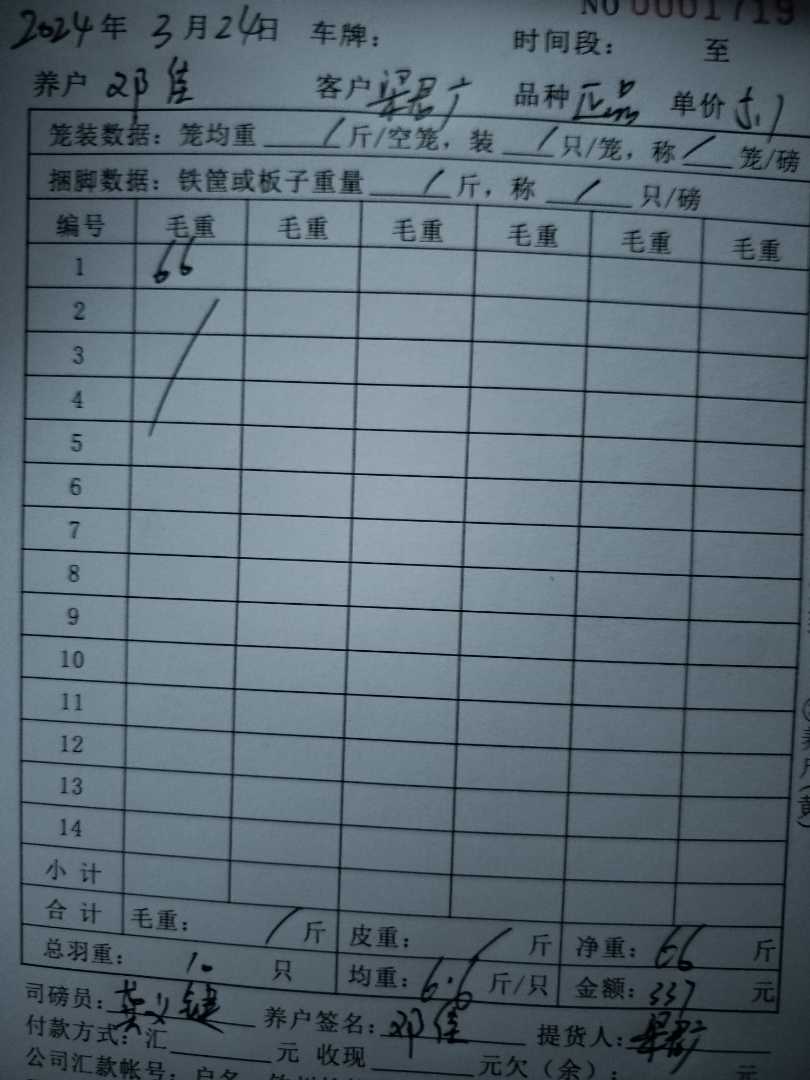 NO 0001719
2024年 3月24日 车牌： 时间段： 至
养户 邓佳 客户 梁君广 品种 正品 单价 5.1
笼装数据：笼均重 / 斤/空笼，装 / 只/笼，称 / 笼/磅
捆脚数据：铁筐或板子重量 / 斤，称 / 只/磅
编号 毛重 毛重 毛重 毛重 毛重 毛重
1 66
2
3
4
5
6
7
8
9
10
11
12
13
14
小计
合计 毛重： / 斤 皮重： / 斤 净重：66 斤
总羽重： 10 只 均重：6.6 斤/只 金额：337 元
司磅员： 养户签名：邓佳 提货人：梁君广
付款方式：汇 元 收现 元欠（余）： 元
公司汇款帐号：户名
养户（黄）